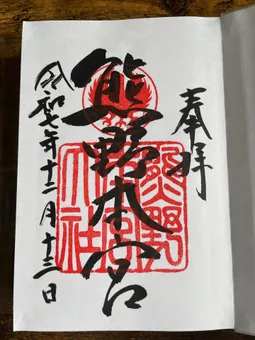 奉拝
熊野本宮
令和七年十二月十三日
熊野
本宮
大社